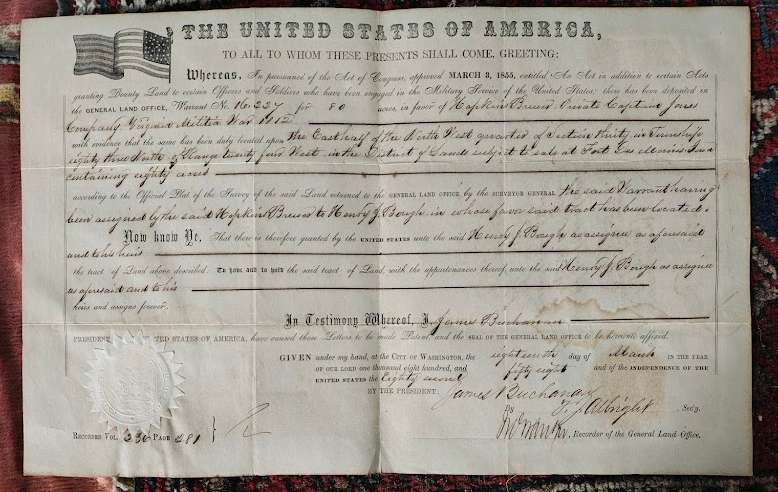 THE UNITED STATES OF AMERICA,
TO ALL TO WHOM THESE PRESENTS SHALL COME, GREETING:
Whereas, In pursuance of the Act of Congress, approved MARCH 3, 1855, entitled "An Act in addition to certain Acts
granting Bounty Land to certain Officers and Soldiers who have been engaged in the Military Service of the United States," there has been deposited in
the GENERAL LAND OFFICE, Warrant No. 16237 for 80 acres, in favor of Hopkin Brewer Private Captain Jones
Company Virginia Militia War 1812
with evidence that the same has been duly located upon the East half of the North West quarter of Section thirty in Township
eighty three North of Range twenty four West in the District of Lands subject to sale at Fort Des Moines Iowa
containing eighty acres
according to the Official Plat of the Survey of the said Land returned to the GENERAL LAND OFFICE by the SURVEYOR GENERAL the said Warrant having
been assigned by the said Hopkin Brewer to Henry J. Bough in whose favor said tract has been located.
Now know Ye, That there is therefore granted by the UNITED STATES unto the said Henry J. Bough as assignee as aforesaid
and to his heirs
the tract of Land above described. To have and to hold the said tract of Land, with the appurtenances thereof, unto the said Henry J. Bough as assignee
as aforesaid and to his
heirs and assigns forever.
In Testimony Whereof, I, James Buchanan
PRESIDENT TED STATES OF AMERICA, have caused these Letters to be made Patent, and the SEAL OF THE GENERAL LAND OFFICE to be hereunto affixed.
GIVEN under my hand, at the CITY OF WASHINGTON, the eighteenth day of March IN THE YEAR
OF OUR LORD one thousand eight hundred, and fifty eight and of the INDEPENDENCE OF THE
UNITED STATES the Eighty second
BY THE PRESIDENT: James Buchanan
By T. J. Albright, Sec'y.
Recorder of the General Land Office.
RECORDED VOL. 236 PAGE 281